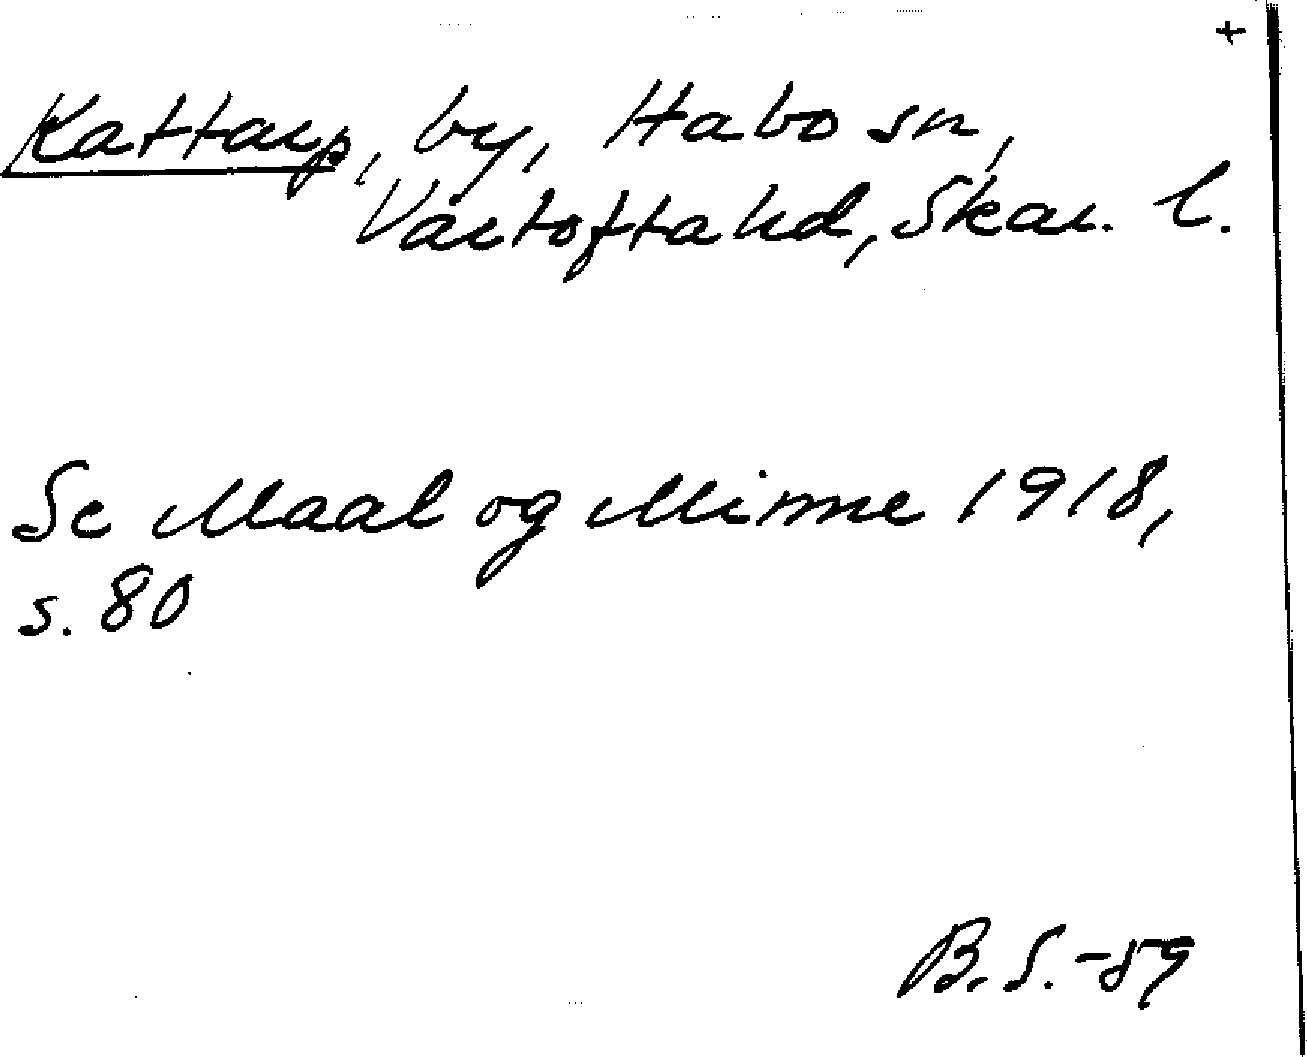 +
Kattarp, by, Habo sn,
Vartofta hd, Skar. l.
Se Maal og Minne 1918,
s. 80
B.S.-59